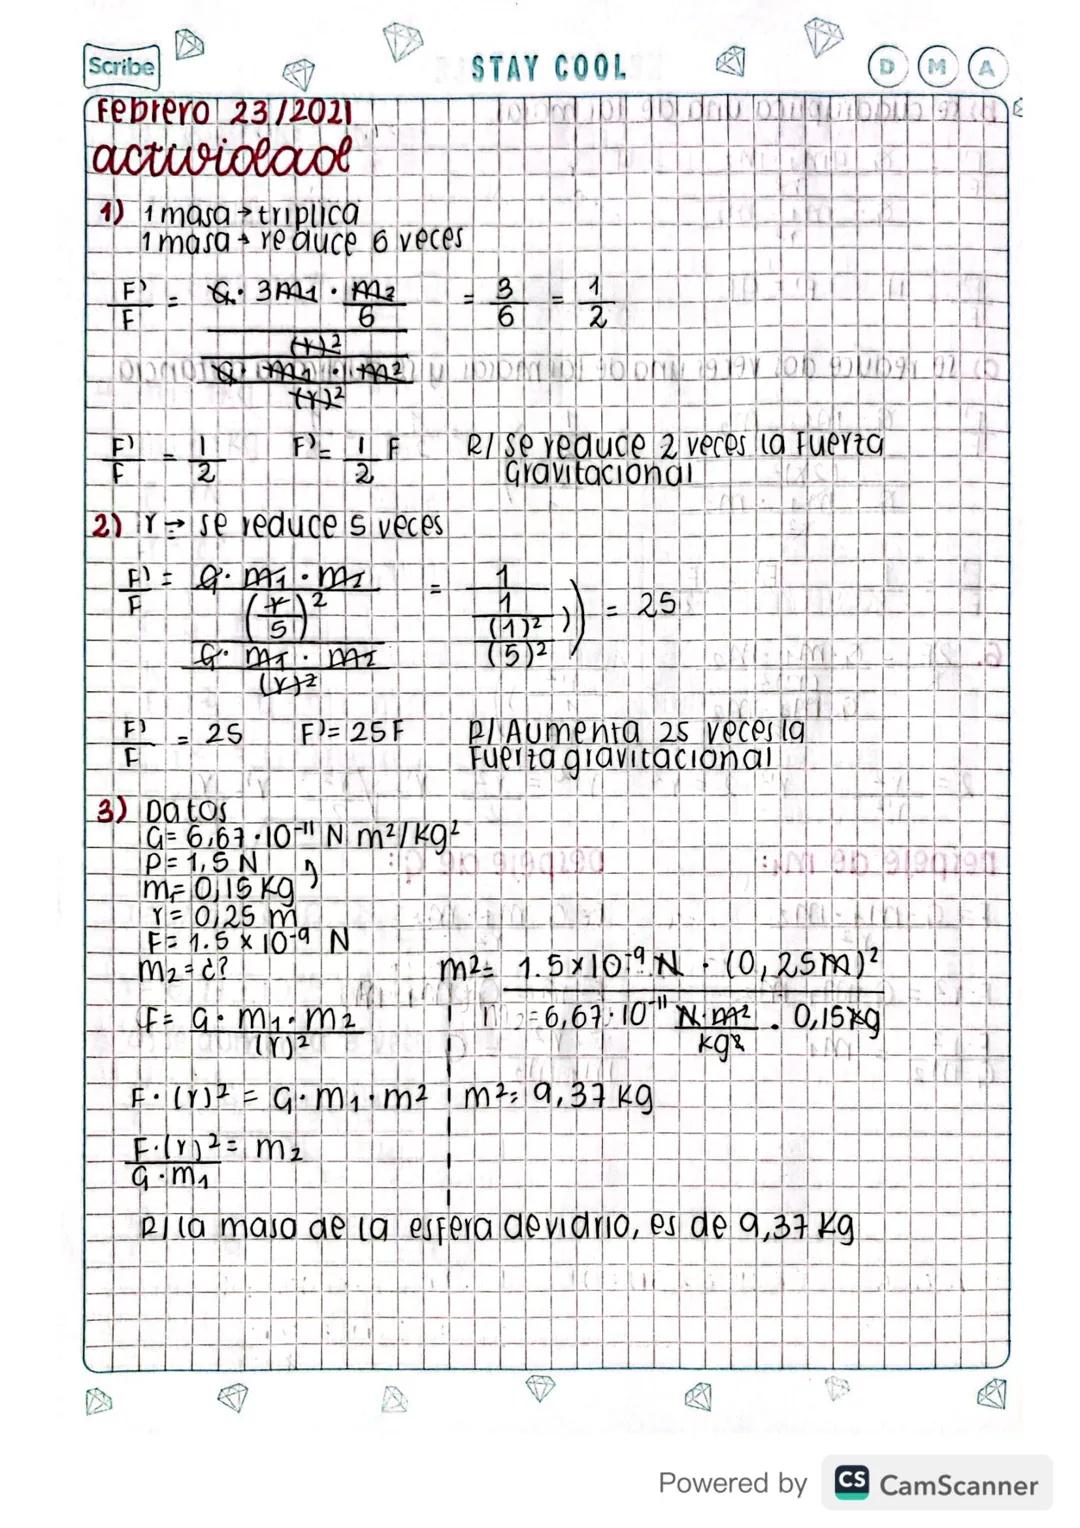 Scribe
STAY COOL
D M A
Febrero 23/2021
actividad
1) 1 masa → triplica
1 masa → reduce 6 veces
F'/F = G · 3m1 · m2/6 / (r)² / G · m1 · m2 / (r)² = 3/6 = 1/2
F'/F = 1/2 F' = 1/2 F R/ se reduce 2 veces la Fuerza
Gravitacional
2) r → se reduce 5 veces
F'/F = G · m1 · m2 / (r/5)² / G · m1 · m2 / (r)² = 1 / 1 / (1)² / (5)² = 25
F'/F = 25 F' = 25 F R/ Aumenta 25 veces la
Fuerza gravitacional
3) Datos
G = 6,67 · 10⁻¹¹ N m²/kg²
P = 1,5 N
m = 0,15 kg
r = 0,25 m
F = 1.5 x 10⁻⁹ N
m2 = ¿?
m² = 1.5 x 10⁻⁹ N · (0,25m)² / 6,67 · 10⁻¹¹ N·m²/kg² . 0,15kg
F = G · m1 · m2 / (r)²
F · (r)² = G · m1 · m² m² = 9,37 kg
F·(r)² / G · m1 = m2
R/ la masa de la esfera de vidrio, es de 9,37 kg
Powered by CS CamScanner